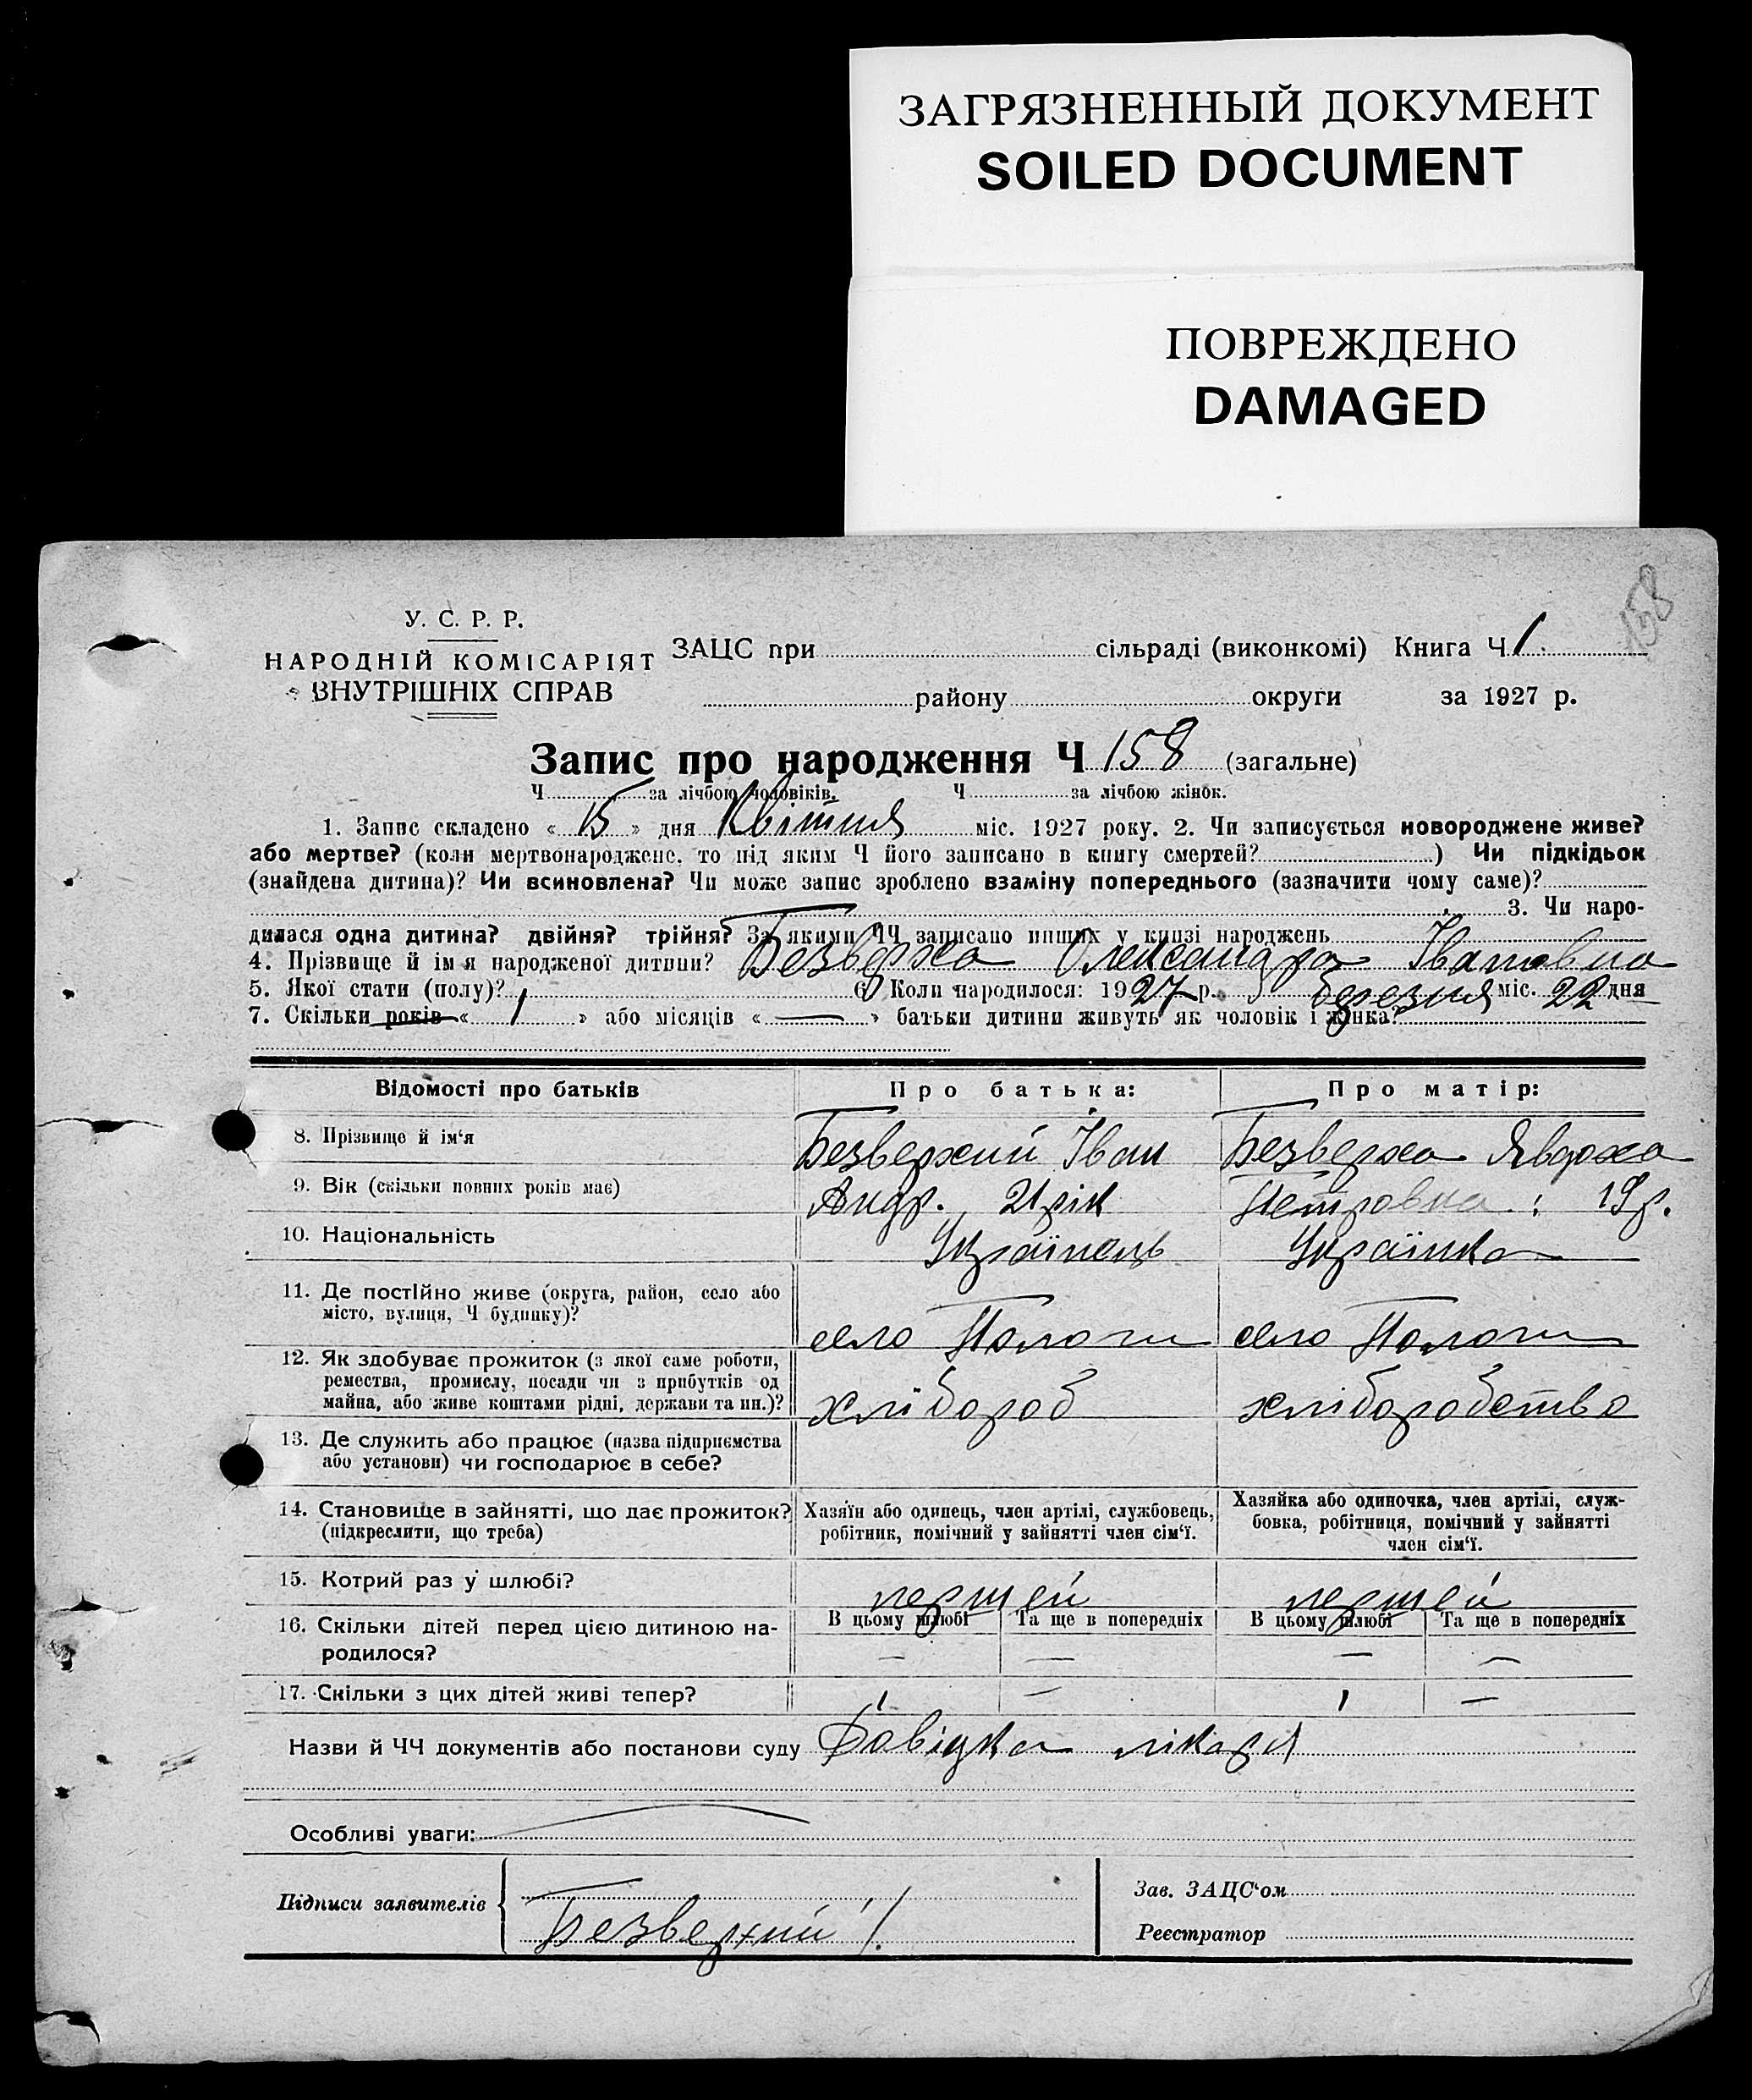 ЗАГРЯЗНЕННЫЙ ДОКУМЕНТ
SOILED DOCUMENT
ПОВРЕЖДЕНО
DAMAGED
158
У. С. Р. Р.
НАРОДНІЙ КОМІСАРІЯТ
ВНУТРІШНІХ СПРАВ
ЗАЦС при сільраді (виконкомі) Книга Ч 1.
району округи за 1927 р.
Запис про народження Ч 158 (загальне)
Ч за лічбою чоловіків. Ч за лічбою жінок.
1. Запис складено « 15 » дня Квітня міс. 1927 року. 2. Чи записується новороджене живе?
або мертве? (коли мертвонароджене, то під яким Ч його записано в книгу смертей? ) Чи підкідьок
(знайдена дитина)? Чи всиновлена? Чи може запис зроблено взаміну попереднього (зазначити чому саме)?
3. Чи наро-
дилася одна дитина? двійня? трійня? За якими ЧЧ записано инших у книзі народжень
4. Прізвище й ім'я народженої дитини? Безверха Олександра Івановна
5. Якої стати (полу)? 6) Коли народилося: 1927 р. березня міс. 22 дня
7. Скільки років « 1 » або місяців « — » батьки дитини живуть як чоловік і жінка?
Відомості про батьків
Про батька:
Про матір:
8. Прізвище й ім‘я
Безверхий Іван
Безверха Явдоха
9. Вік (скільки повних років має)
Андр. 21 рік
Петровна : 19 р.
10. Національність
Українець
Українка
11. Де постійно живе (округа, район, село або
місто, вулиця, Ч будинку)?
село Пологи
село Пологи
12. Як здобуває прожиток (з якої саме роботи,
ремества, промислу, посади чи з прибутків од
майна, або живе коштами рідні, держави та ин.)?
хлібороб
хліборобство
13. Де служить або працює (назва підприємства
або установи) чи господарює в себе?
14. Становище в зайнятті, що дає прожиток?
(підкреслити, що треба)
Хазяїн або одинець, член артілі, службовець,
робітник, помічний у зайнятті член сім‘ї.
Хазяйка або одиночка, член артілі, служ-
бовка, робітниця, помічний у зайнятті
член сім‘ї.
15. Котрий раз у шлюбі?
першей
першей
16. Скільки дітей перед цією дитиною на-
родилося?
В цьому шлюбі
Та ще в попередніх
В цьому шлюбі
Та ще в попередніх
— — — —
17. Скільки з цих дітей живі тепер?
1 — 1 —
Назви й ЧЧ документів або постанови суду Довідка лікаря
Особливі уваги:
Підписи заявителів
Безверхий І.
Зав. ЗАЦС‘ом
Реєстратор